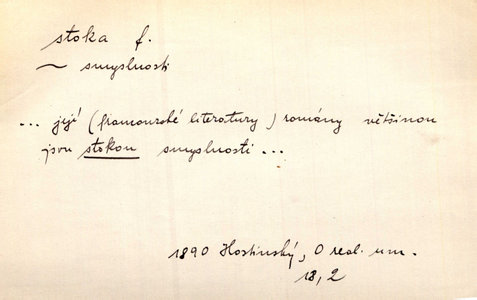 stoka f.
~ smyslnosti
... její (francouzské literatury) romány většinou
jsou stokou smyslnosti ...
1890 Hostinský, O real. um.
18, 2